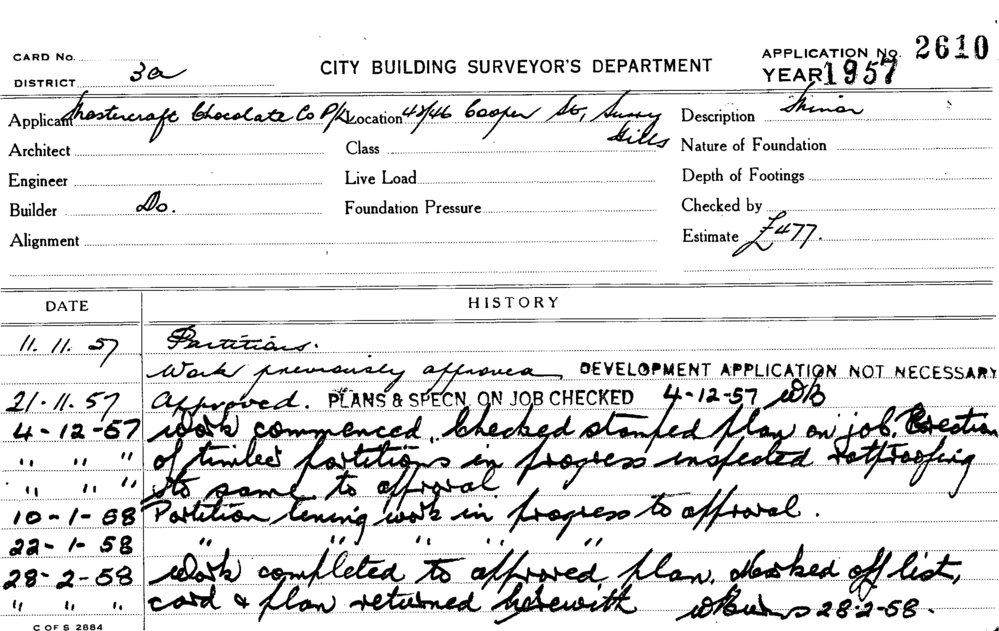 CARD No.
DISTRICT 3a
CITY BUILDING SURVEYOR'S DEPARTMENT
APPLICATION No. 2610
YEAR 1957
Applicant Mastercraft Chocolate Co P/L Location 42/46 Cooper St, Surry Hills Description Minor
Architect Class Nature of Foundation
Engineer Live Load Depth of Footings
Builder Do. Foundation Pressure Checked by
Alignment Estimate £477.
DATE HISTORY
11. 11. 57 Partitions.
Work previously approved DEVELOPMENT APPLICATION NOT NECESSARY
21. 11. 57 Approved. PLANS & SPECN. ON JOB CHECKED 4-12-57 WB
4-12-57 Work commenced. Checked stamped plan on job. Erection
" " " of timber partitions in progress inspected ratproofing
" " " to same to approval
10-1-58 Partition lining work in progress to approval.
22-1-58 " " " " "
28-2-58 Work completed to approved plan. Marked off list,
" " " card & plan returned herewith 28-2-58.
C OF S 2884